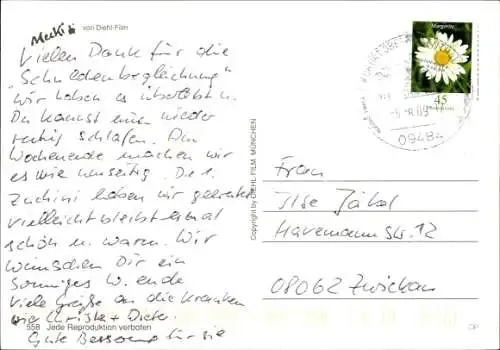 Mecki von Diehl-Film
Vielen Dank für die
"Schuldenbegleichung"
Wir haben es überlebt u.
Du kannst nun wieder
ruhig schlafen. Am
Wochenende machen wir
es wie neuseitig. Die 1.
Zuchini haben wir geerntet
vielleicht bleibst einmal
schön u. warm. Wir
wünschen Dir ein
sonniges W. ende
Viele Grüße an die Kranken
Christa + Dieter
558 Jede Reproduktion verboten
Gute Besserung für sie
Copyright by DIEHL FILM MÜNCHEN
Margerite
45
09484
Frau
Ilse Jäkel
Havemannstr. 12
08062 Zwickau